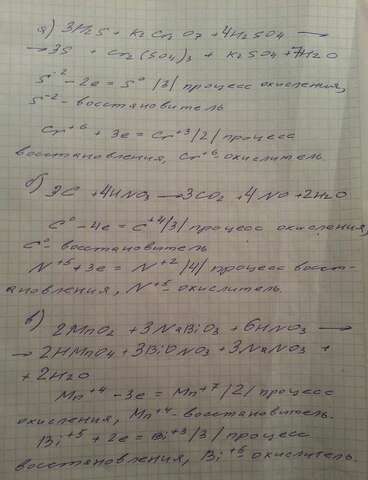 а) 3H2S + K2Cr2O7 + 4H2SO4 →
→ 3S + Cr2(SO4)3 + K2SO4 + 7H2O
S-2 - 2e = S0 /3/ процесс окисления,
S-2 - восстановитель
Cr+6 + 3e = Cr+3 /2/ процесс
восстановления, Cr+6 окислитель.
б) 3C + 4HNO3 → 3CO2 + 4NO + 2H2O
C0 - 4e = C+4 /3/ процесс окисления,
C0 - восстановитель
N+5 + 3e = N+2 /4/ процесс восст-
ановления, N+5 - окислитель.
в) 2MnO2 + 3NaBiO3 + 6HNO3 →
→ 2HMnO4 + 3BiONO3 + 3NaNO3 +
+ 2H2O
Mn+4 - 3e = Mn+7 /2/ процесс
окисления, Mn+4 - восстановитель.
Bi+5 + 2e = Bi+3 /3/ процесс
восстановления, Bi+5 - окислитель.